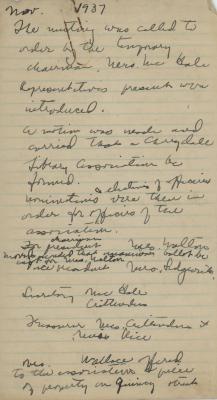 Nov. 1937
The meeting was called to
order by the temporary
chairman. Mrs. Mc Hale
Representatives present were
introduced.
A motion was made and
carried that a
Library Association be
formed. election of officers
nominations were then in
order for officers of the
association.
chairman
For president Mrs. Walton
moved that unanimous ballot be
cast for Mrs. Walton
Vice President Mrs.
Secretary Mc Hale
Crittenden
Treasurer Mrs. Crittenden +
Rice
Mrs. Wallace offered
to the association a piece
of property on Quincy street